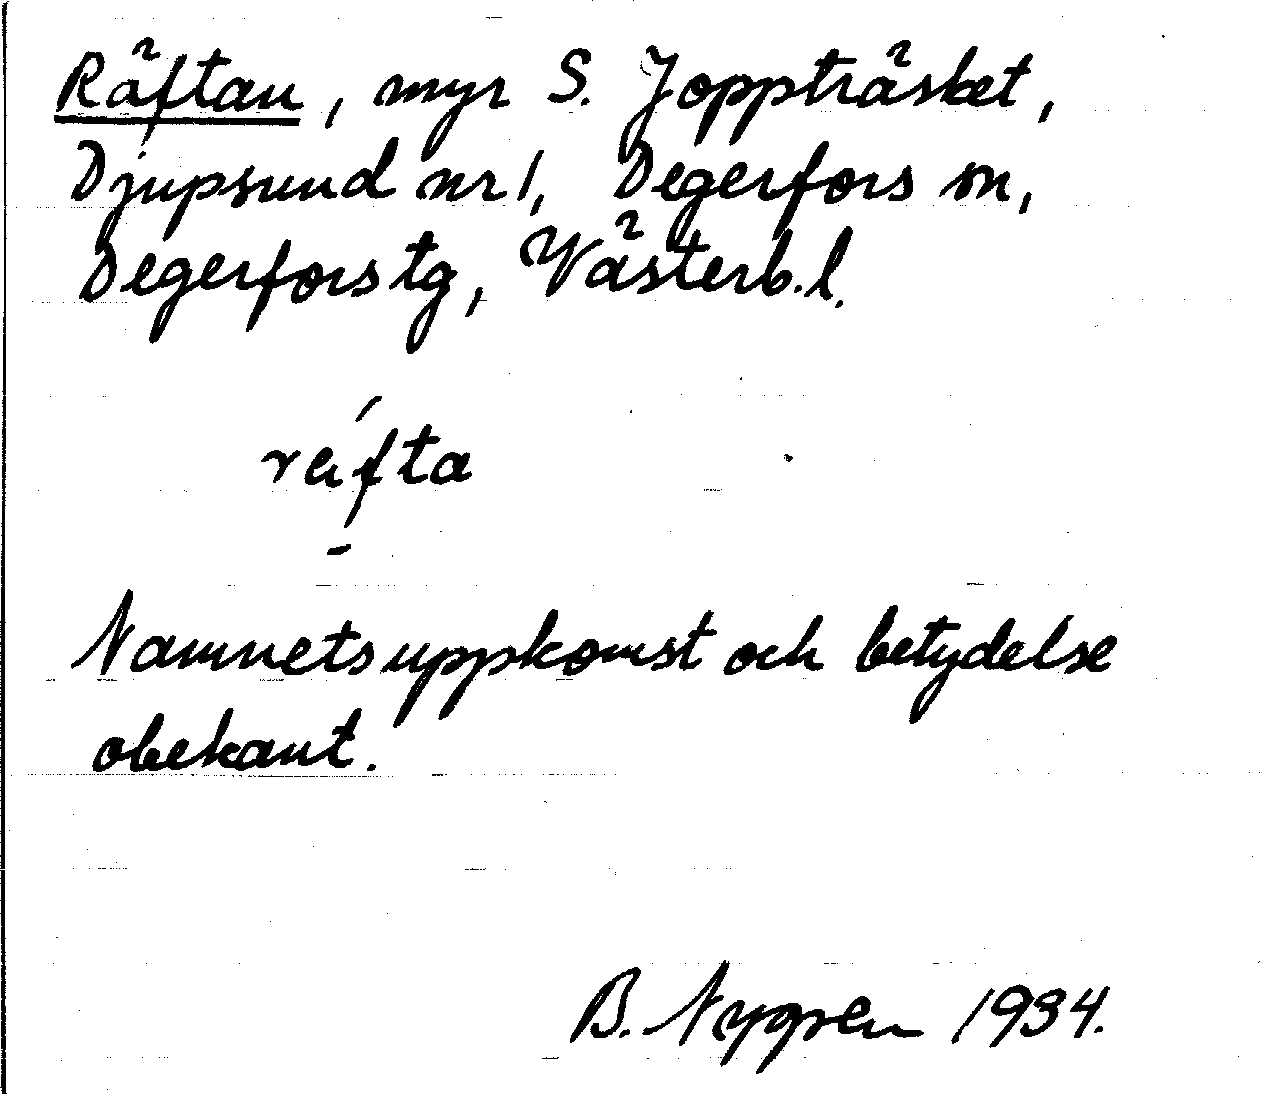 Räftan, myr S. Joppträsket,
Djupsund nr 1, Degerfors sn,
Degerfors tg, Västerb.l.
ráfta
Namnets uppkomst och betydelse
obekant.
B. Nygren 1934.